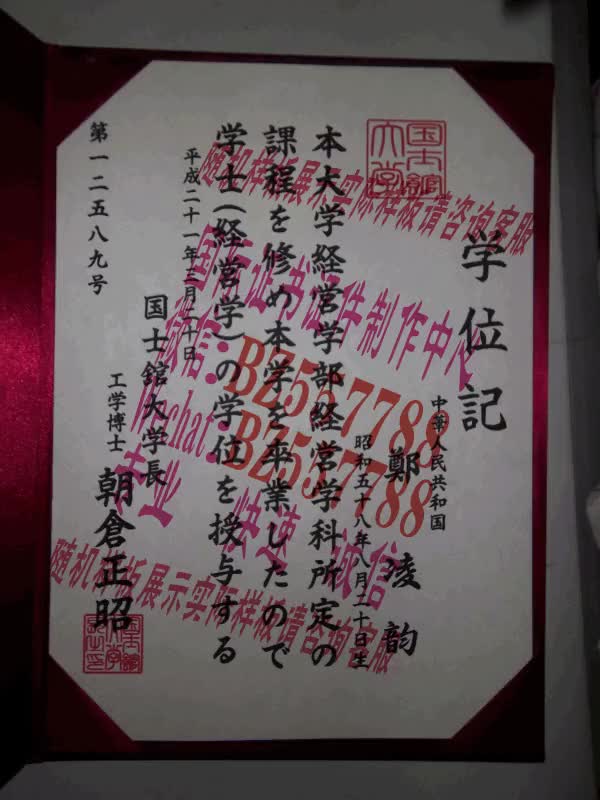 学位記
中華人民共和国
鄭凌韵
昭和五十八年八月二十日生
本大学経営学部経営学科所定の
課程を修め本学を卒業したので
学士(経営学)の学位を授与する
平成二十一年三月二十日
国士舘大学長
工学博士 朝倉正昭
第一二五八九号
国士舘大学
随机样板展示实际样板请咨询客服
证书证件制作中心
微信:BZ557788
Wechat:BZ557788
专业 快速 诚信
随机样板展示实际样板请咨询客服